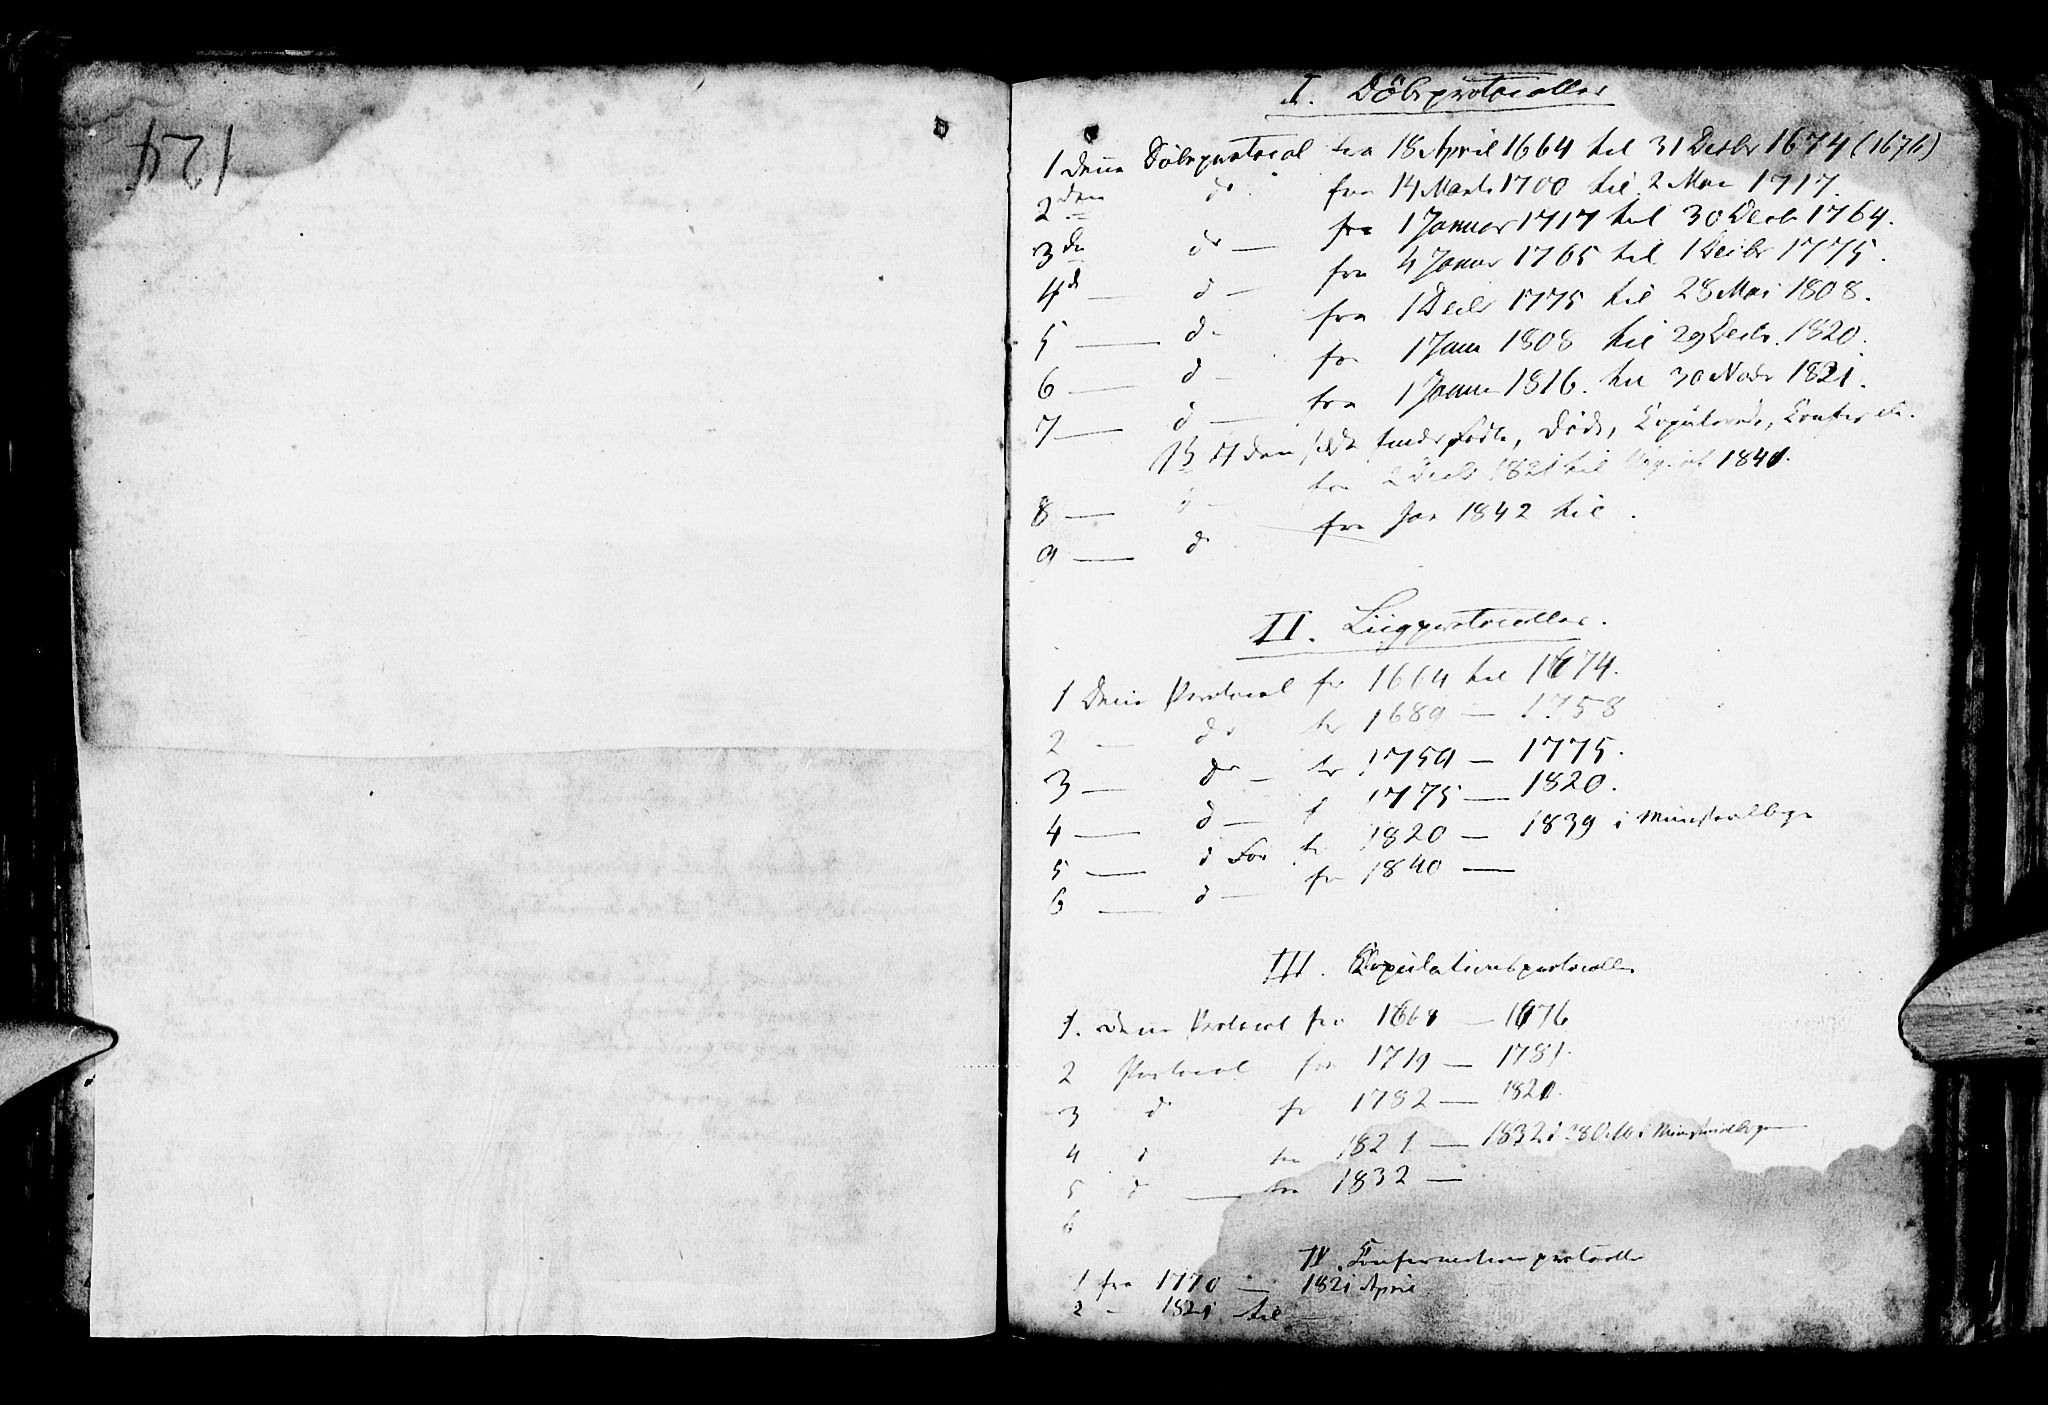 124
I. Döbsprotocoller
1 Denne Döbsprotocol fra 18 April 1664 til 31 Decbr 1674 (1676)
2den do fra 14 Marts 1700 til 2 Mai 1717.
3die do — fra 1 Januar 1717 til 30 Decbr 1764.
4de — d — fra 4 Januar 1765 til 1 Decbr 1775.
5 — do fra 1 Decbr 1775 til 28 Mai 1808.
6 — d — fra 1 Janu 1808 til 29 Decbr. 1820.
7 — d — fra 1 Januar 1816. til 30 Novbr 1821.
8 — d — fra 2 Decbr 1821 til 1841.
9 — d fra Jan 1842 til .
II. Liigprotocoller.
1 Denne Protocol fr 1664 til 1674.
2 — do fr 1689 — 1758
3 — do — fr 1759 — 1775.
4 — d — f 1775 — 1820.
5 — d fr 1820 — 1839 i Ministerialbogen
6 — d — fr 1840 —
III. Copulationsprotocoller
1. Denne Protocol fra 1668 — 1676
2 Protocol fra 1719 — 1781.
3 d fr 1782 — 1820.
4 d fra 1821 — 1832 i Ministerialbogen
5 d — fra 1832 —
6
IV. Confirmationsprotocolle
1 fra 1770 — 1821 April
2 - 1821 til —